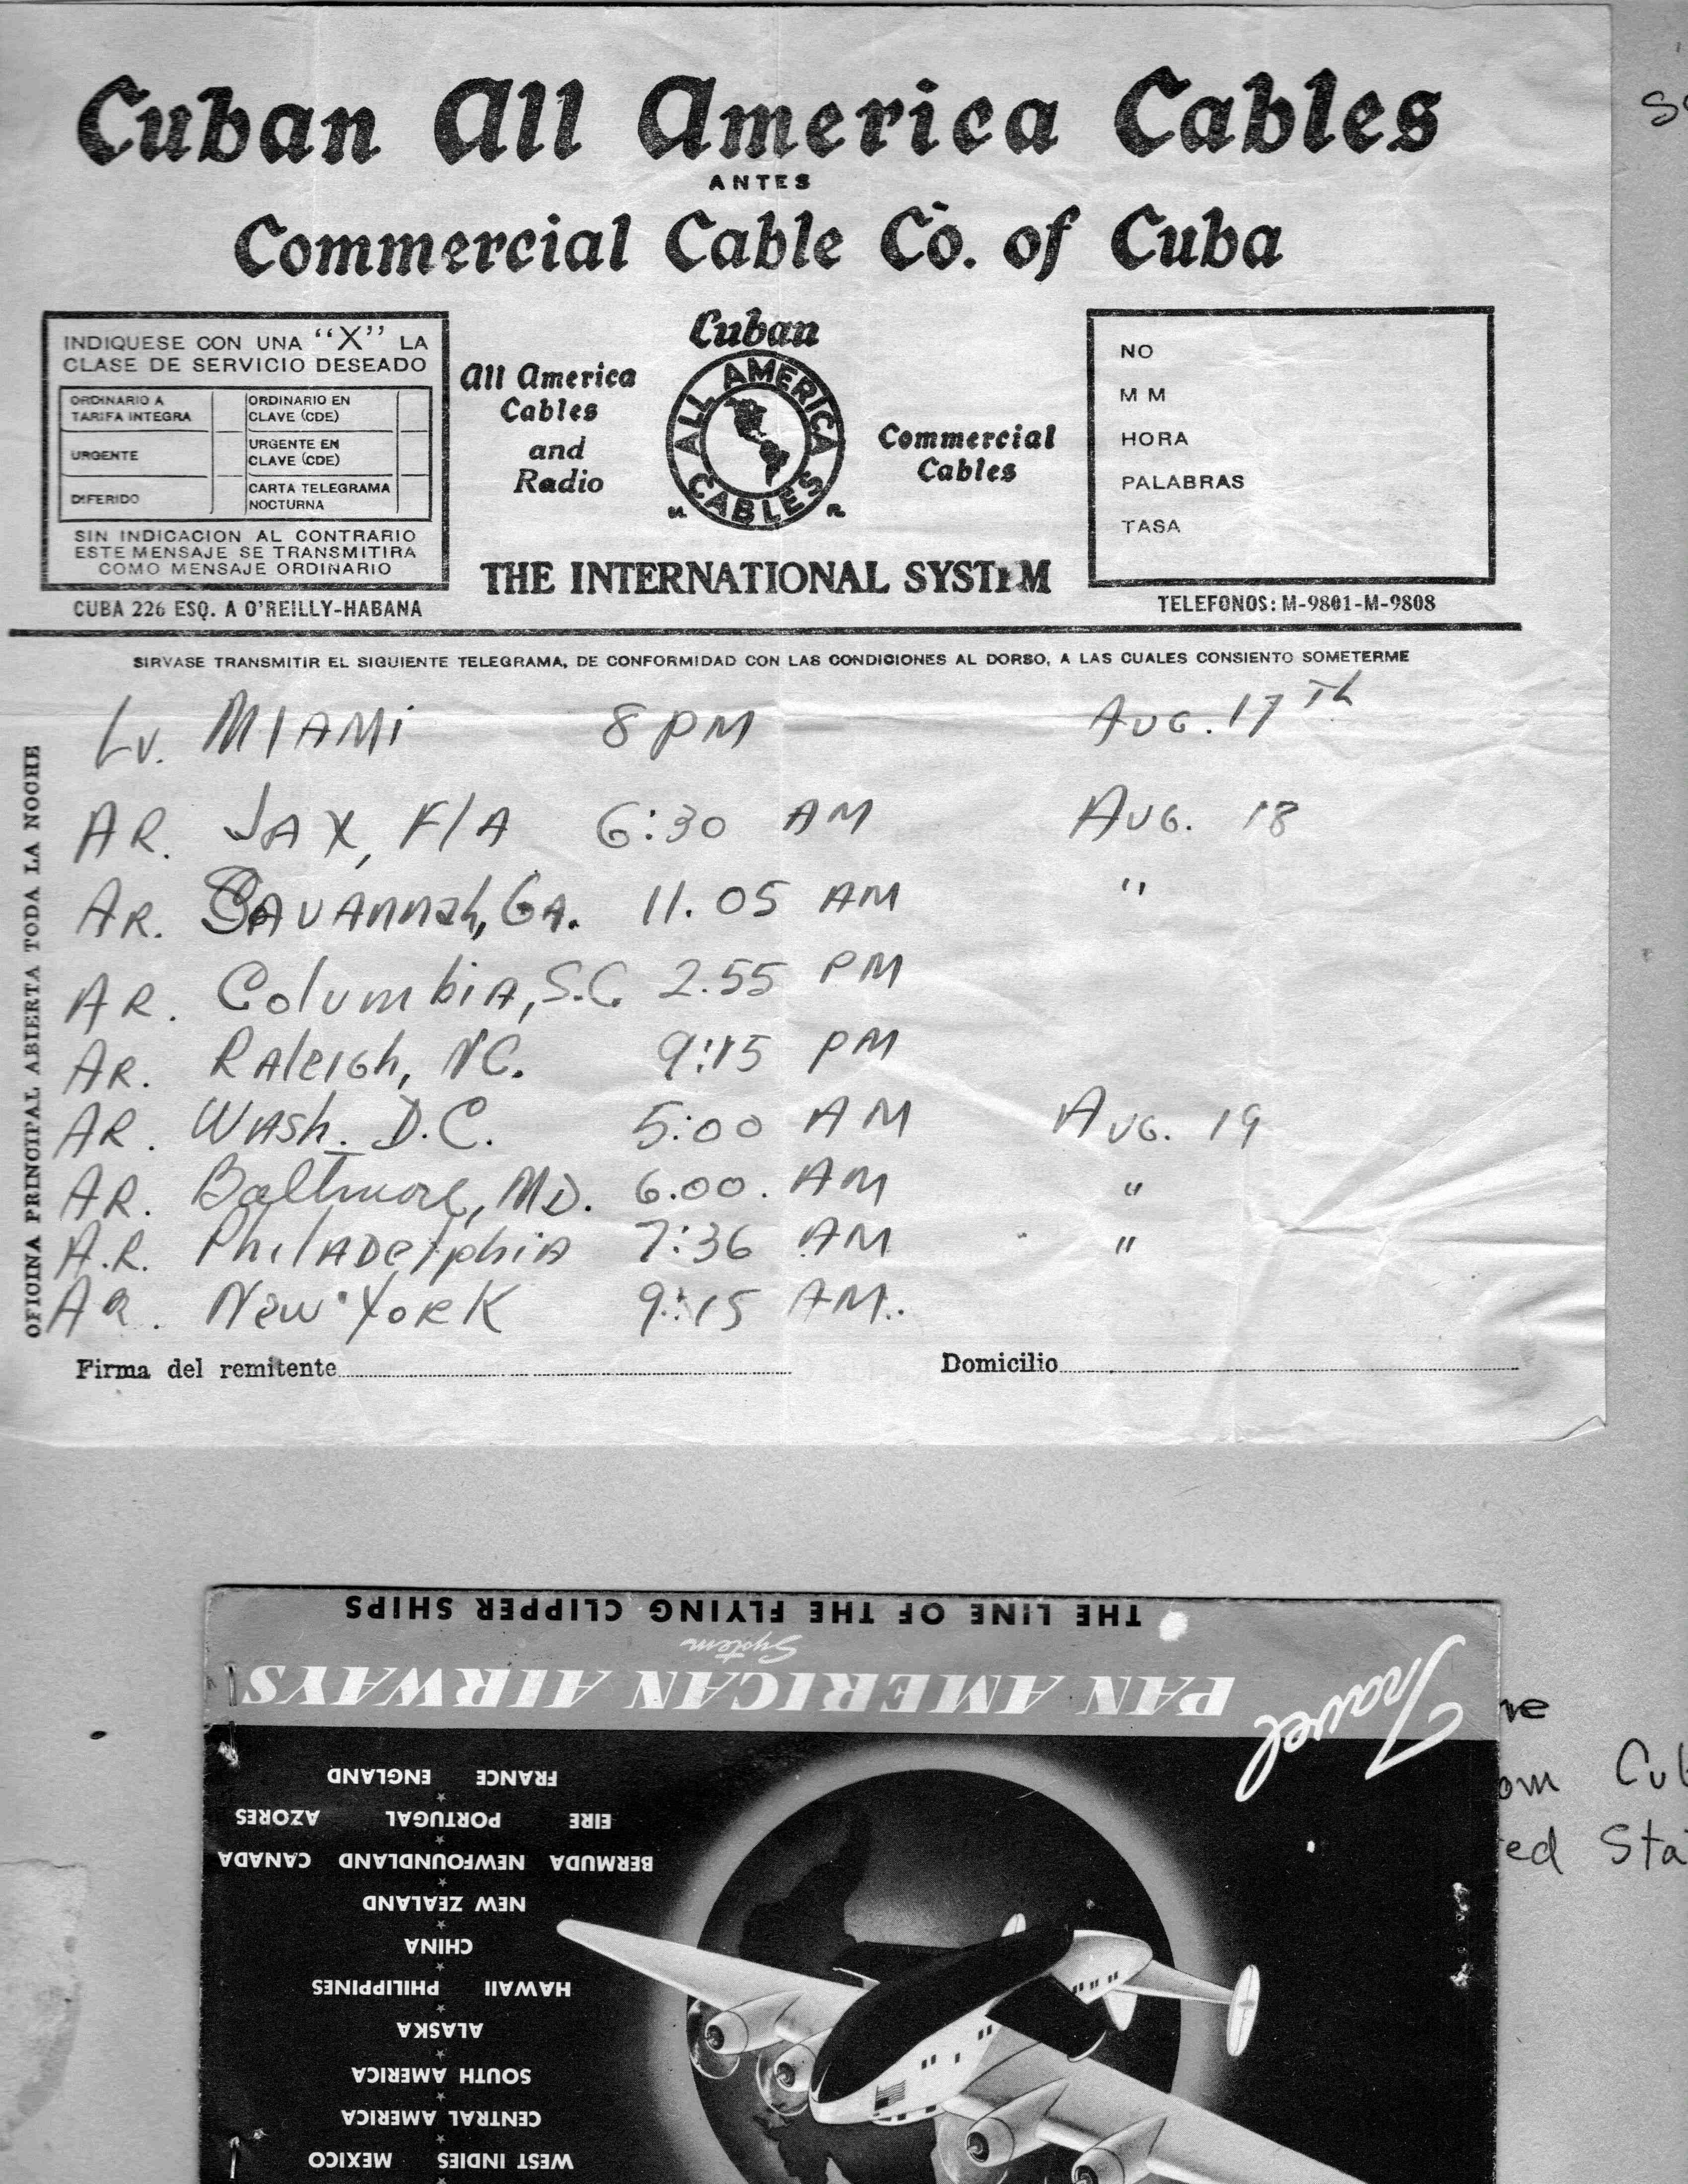 Cuban All America Cables
ANTES
Commercial Cable Co. of Cuba
INDIQUESE CON UNA "X" LA
CLASE DE SERVICIO DESEADO
ORDINARIO A
TARIFA INTEGRA
ORDINARIO EN
CLAVE (CDE)
URGENTE
URGENTE EN
CLAVE (CDE)
DIFERIDO
CARTA TELEGRAMA
NOCTURNA
SIN INDICACION AL CONTRARIO
ESTE MENSAJE SE TRANSMITIRA
COMO MENSAJE ORDINARIO
CUBA 226 ESQ. A O'REILLY-HABANA
All America
Cables
and
Radio
Cuban
ALL AMERICA
CABLES
Commercial
Cables
THE INTERNATIONAL SYSTEM
NO
M M
HORA
PALABRAS
TASA
TELEFONOS: M-9801-M-9808
SIRVASE TRANSMITIR EL SIGUIENTE TELEGRAMA, DE CONFORMIDAD CON LAS CONDICIONES AL DORSO, A LAS CUALES CONSIENTO SOMETERME
OFICINA PRINCIPAL ABIERTA TODA LA NOCHE
Lv. MIAMi 8 PM AUG. 17 Th
AR. JAX, FlA 6:30 AM AUG. 18
AR. SAVAnnah, GA. 11.05 AM "
AR. ColumbiA, S.C. 2.55 PM
AR. RAleigh, NC. 9:15 PM
AR. WAsh. D.C. 5:00 AM AUG. 19
AR. Baltimore, MD. 6.00. AM "
A.R. PhilADelphiA 7:36 AM "
AR. New York 9:15 AM.
Firma del remitente
Domicilio
THE LINE OF THE FLYING CLIPPER SHIPS
System
PAN AMERICAN AIRWAYS
Travel
FRANCE ENGLAND
EIRE PORTUGAL AZORES
BERMUDA NEWFOUNDLAND CANADA
NEW ZEALAND
CHINA
HAWAII PHILIPPINES
ALASKA
SOUTH AMERICA
CENTRAL AMERICA
WEST INDIES MEXICO